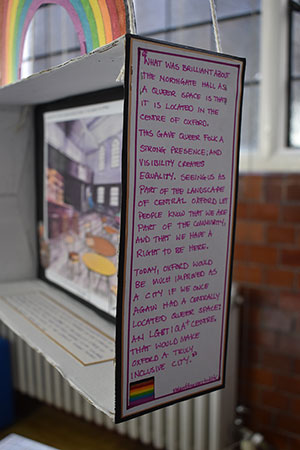 "WHAT WAS BRILLIANT ABOUT
THE NORTHGATE HALL AS
A QUEER SPACE IS THAT
IT IS LOCATED IN THE
CENTRE OF OXFORD.
THIS GAVE QUEER FOLK A
STRONG PRESENCE, AND
VISIBILITY CREATES
EQUALITY. SEEING US AS
PART OF THE LANDSCAPE
OF CENTRAL OXFORD LET
PEOPLE KNOW THAT WE ARE
PART OF THE COMMUNITY,
AND THAT WE HAVE A
RIGHT TO BE HERE.
TODAY, OXFORD WOULD
BE MUCH IMPROVED AS
A CITY IF WE ONCE
AGAIN HAD A CENTRALLY
LOCATED QUEER SPACE/
AN LGBTIQA+ CENTRE.
THAT WOULD MAKE
OXFORD A TRULY
INCLUSIVE CITY."